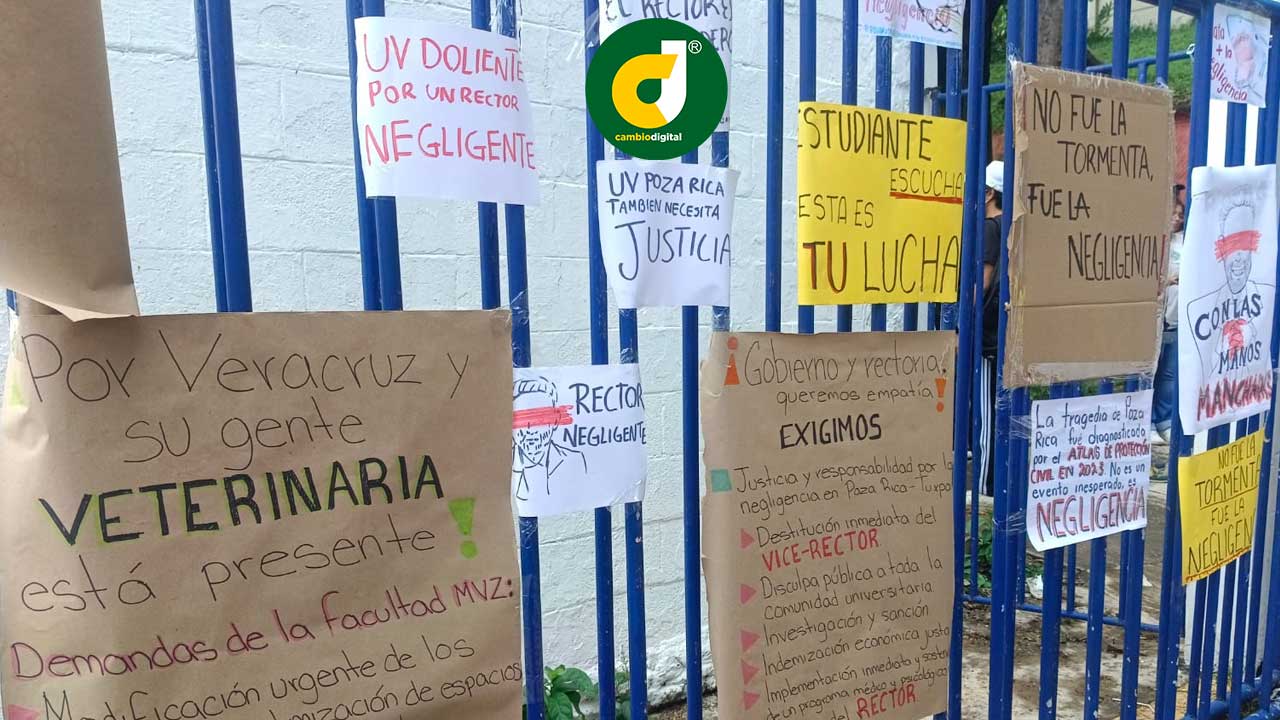 UV DOLIENTE
POR UN RECTOR
NEGLIGENTE
EL RECTOR
®
cambiodigital
UV POZA RICA
TAMBIEN NECESITA
JUSTICIA
ESTUDIANTE
ESCUCHA
ESTA ES
TU LUCHA
NO FUE LA
TORMENTA,
FUE LA
NEGLIGENCIA!
CON LAS
MANOS
MANCHADAS
Por Veracruz y
su gente
VETERINARIA
está presente!
Demandas de la facultad MVZ:
Modificación urgente de los
de espacios
RECTOR
NEGLIGENTE
¡Gobierno y rectoria,
queremos empatía!
EXIGIMOS
Justicia y responsabilidad por la
negligencia en Poza Rica-Tuxpan
Destitución inmediata del
VICE-RECTOR
Disculpa pública a toda la
comunidad universitaria
Investigación y sanción
Indemización económica justa
Implementación inmediata y
de un programa médico y psicológico
del RECTOR
La tragedia de Poza
Rica fué diagnosticada
por el ATLAS DE PROTECCIÓN
CIVIL EN 2023 No es un
evento inesperado, es
NEGLIGENCIA
NO FUE LA
TORMENTA
FUE LA
NEGLIGEN
negligencia